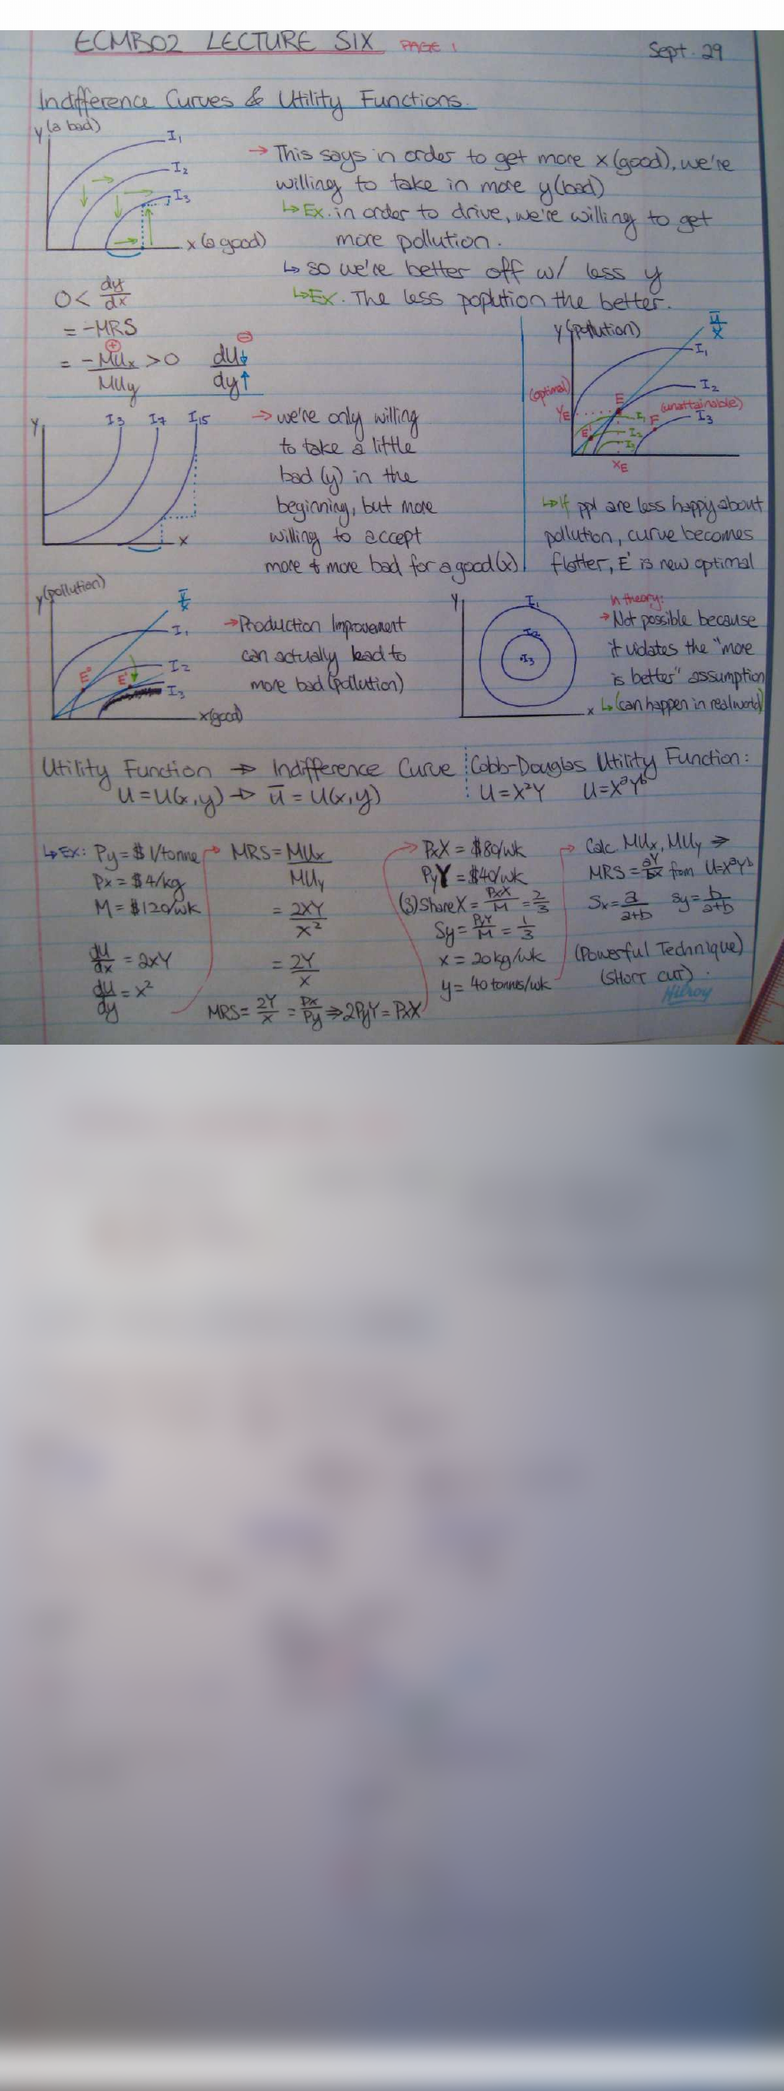 ECMB02 LECTURE SIX PAGE 1
Sept. 29
Indifference Curves & Utility Functions.
y (a bad)
I1
I2
I3
x (a good)
→ This says in order to get more x (good), we're
willing to take in more y (bad)
↳ Ex. in order to drive, we're willing to get
more pollution.
↳ so we're better off w/ less y
↳ Ex. The less poplution the better.
0 < dy/dx
= -MRS
= -MUx/MUy > 0
⊕
dU↓/dy↑
⊖
Y
I3 I7 I15
x
→ we're only willing
to take a little
bad (y) in the
beginning, but more
willing to accept
more & more bad for a good (x)
y (pollution)
ū/x
I1
I2
I3
(optimal)
YE
E
E'
F
(unattainable)
I1
I2
I3
XE
↳ If ppl are less happy about
pollution, curve becomes
flatter, E' is new optimal
y (pollution)
I1
I2
I3
E°
E'
x (good)
→ Production Improvement
can actually lead to
more bad (pollution)
Y
I1
I2
I3
x
in theory:
→ Not possible because
it violates the "more
is better" assumption
↳ (can happen in real world)
Utility Function → Indifference Curve
U = U(x,y) → ū = U(x,y)
Cobb-Douglas Utility Function:
U = X²Y U = XᵃYᵇ
↳ Ex: Py = $1/tonne
Px = $4/kg
M = $120/wk
dU/dx = 2xY
dU/dy = x²
MRS = MUx/MUy
= 2XY/X²
= 2Y/X
MRS = 2Y/X = Px/Py ⇒ 2PyY = PxX
PxX = $80/wk
PyY = $40/wk
(3) Share X = PxX/M = 2/3
Sy = PyY/M = 1/3
x = 20 kg/wk
y = 40 tonnes/wk
Calc MUx, MUy ⇒
MRS = aY/bx from U = XᵃYᵇ
Sx = a/a+b Sy = b/a+b
(Powerful Technique)
(short cut).
Hilroy